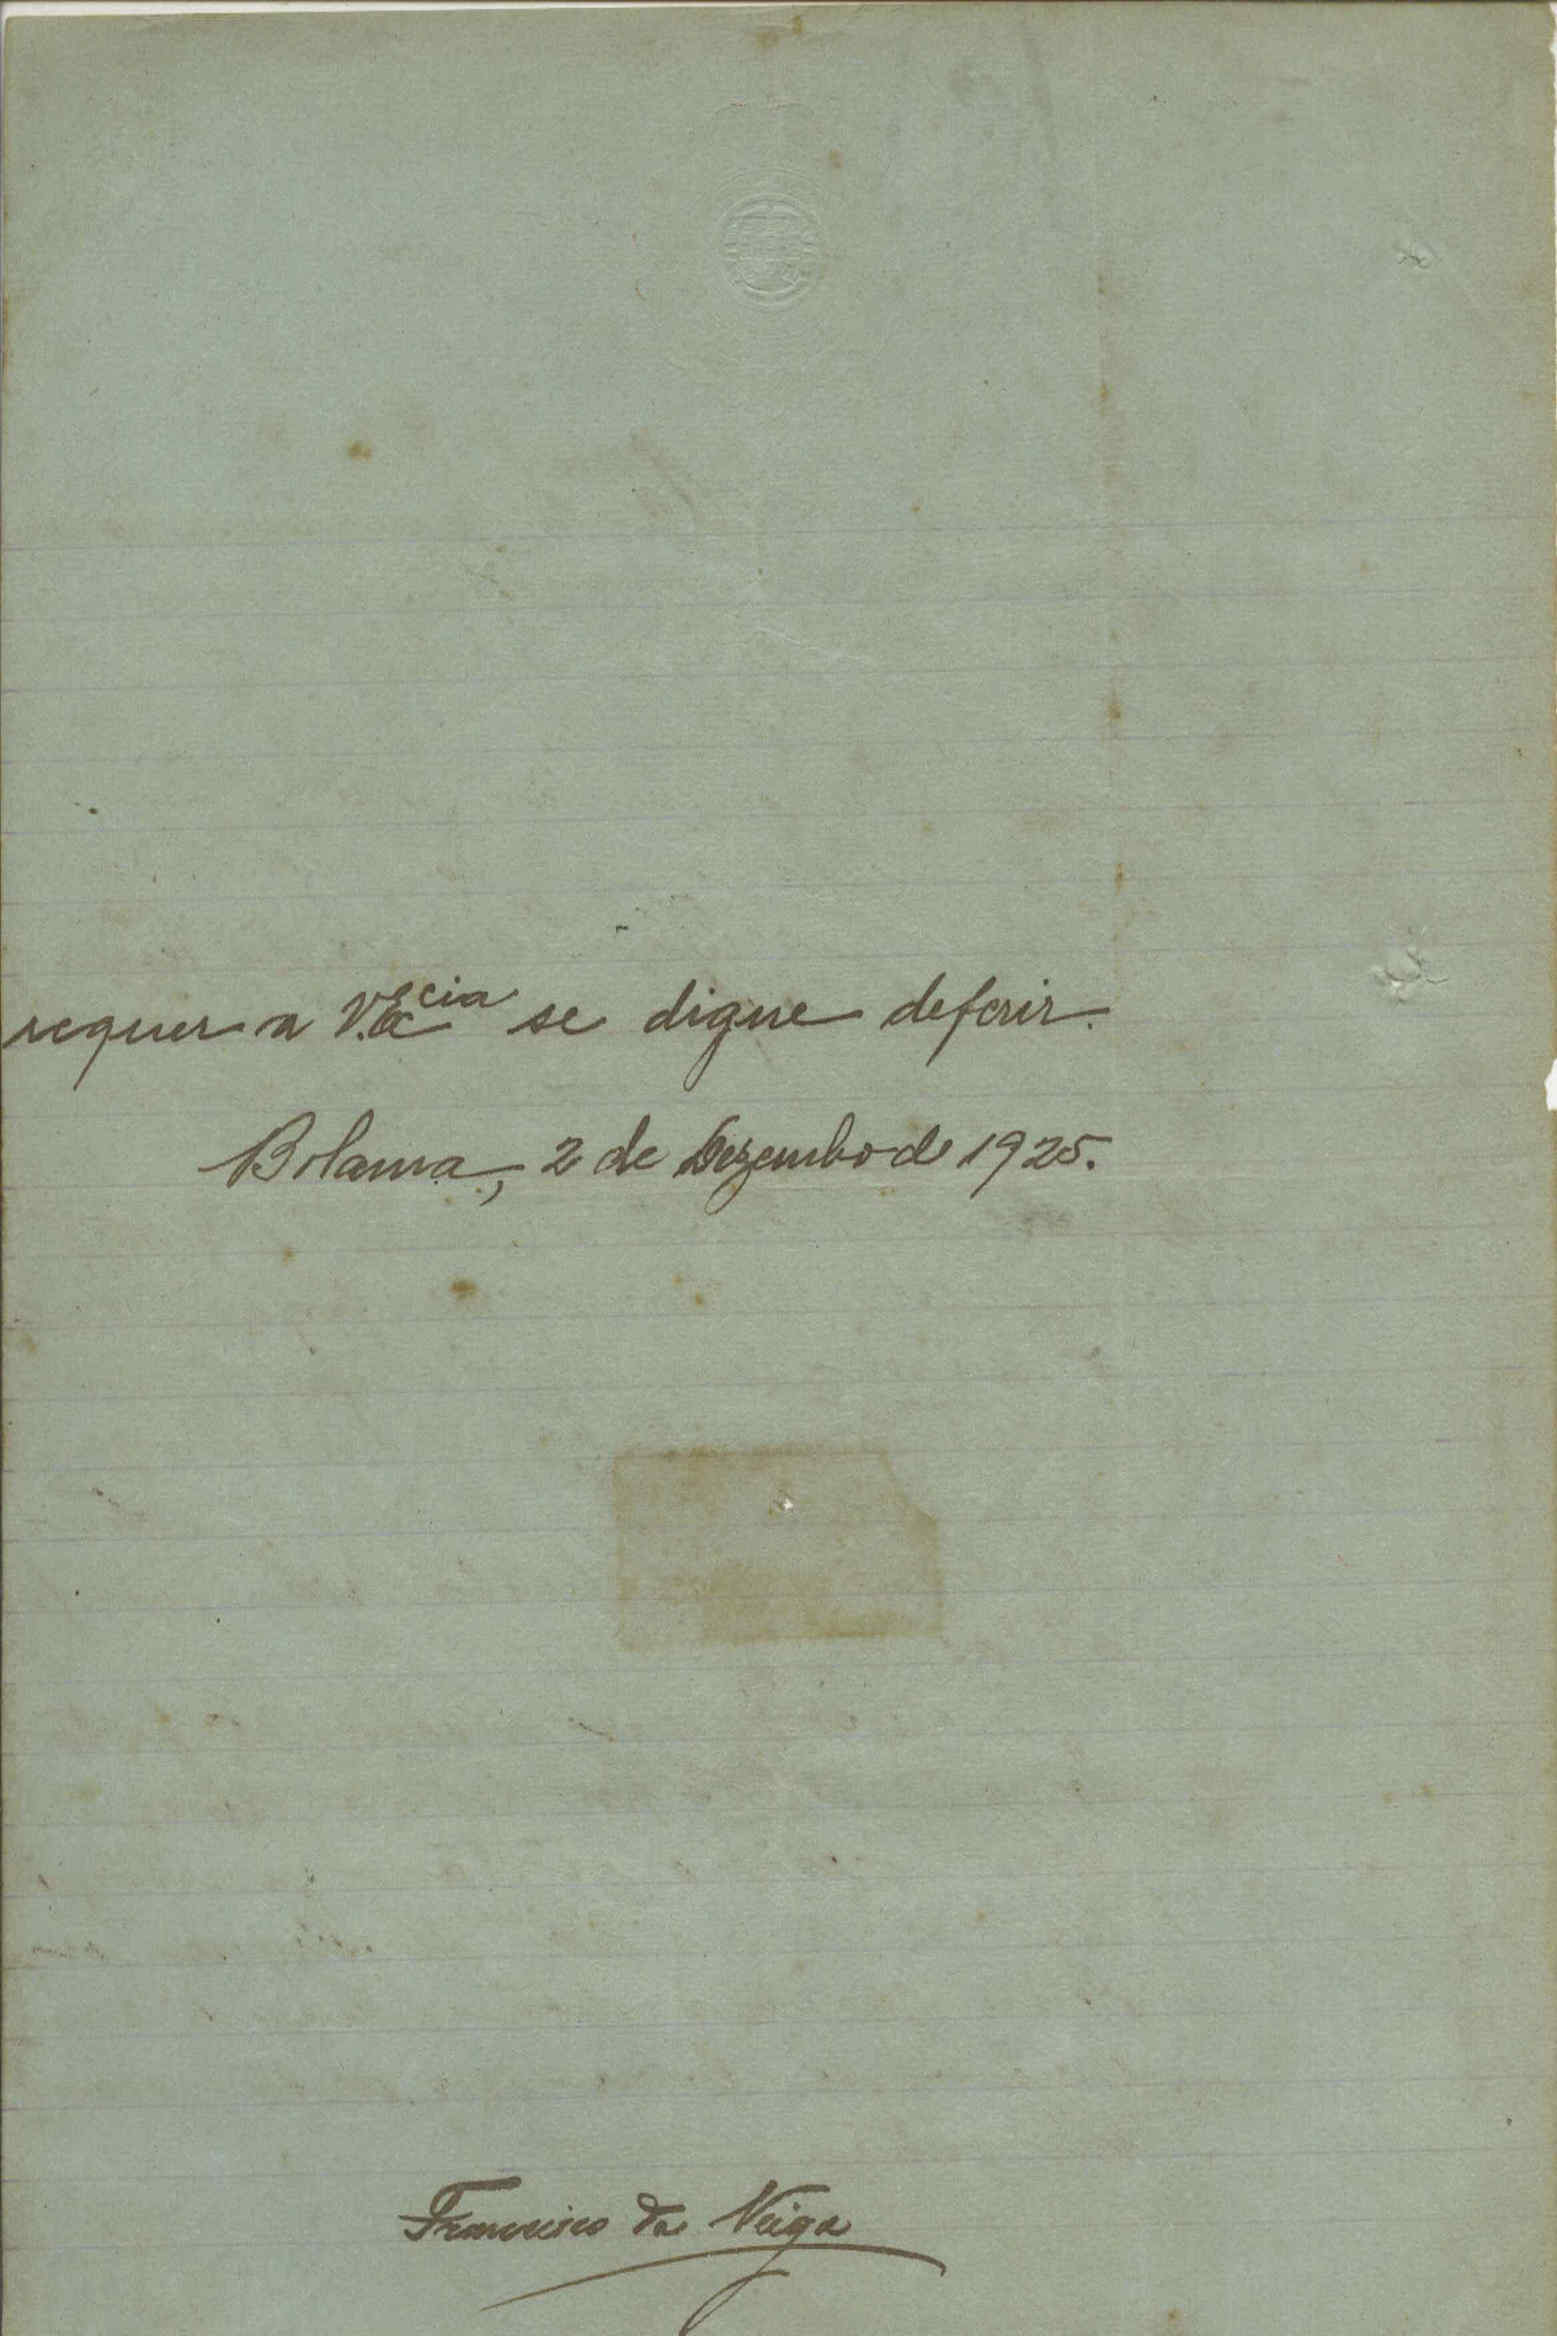 requer a V. Ex.cia se digne deferir.
Bolama, 2 de Dezembro de 1925.
Francisco da Veiga